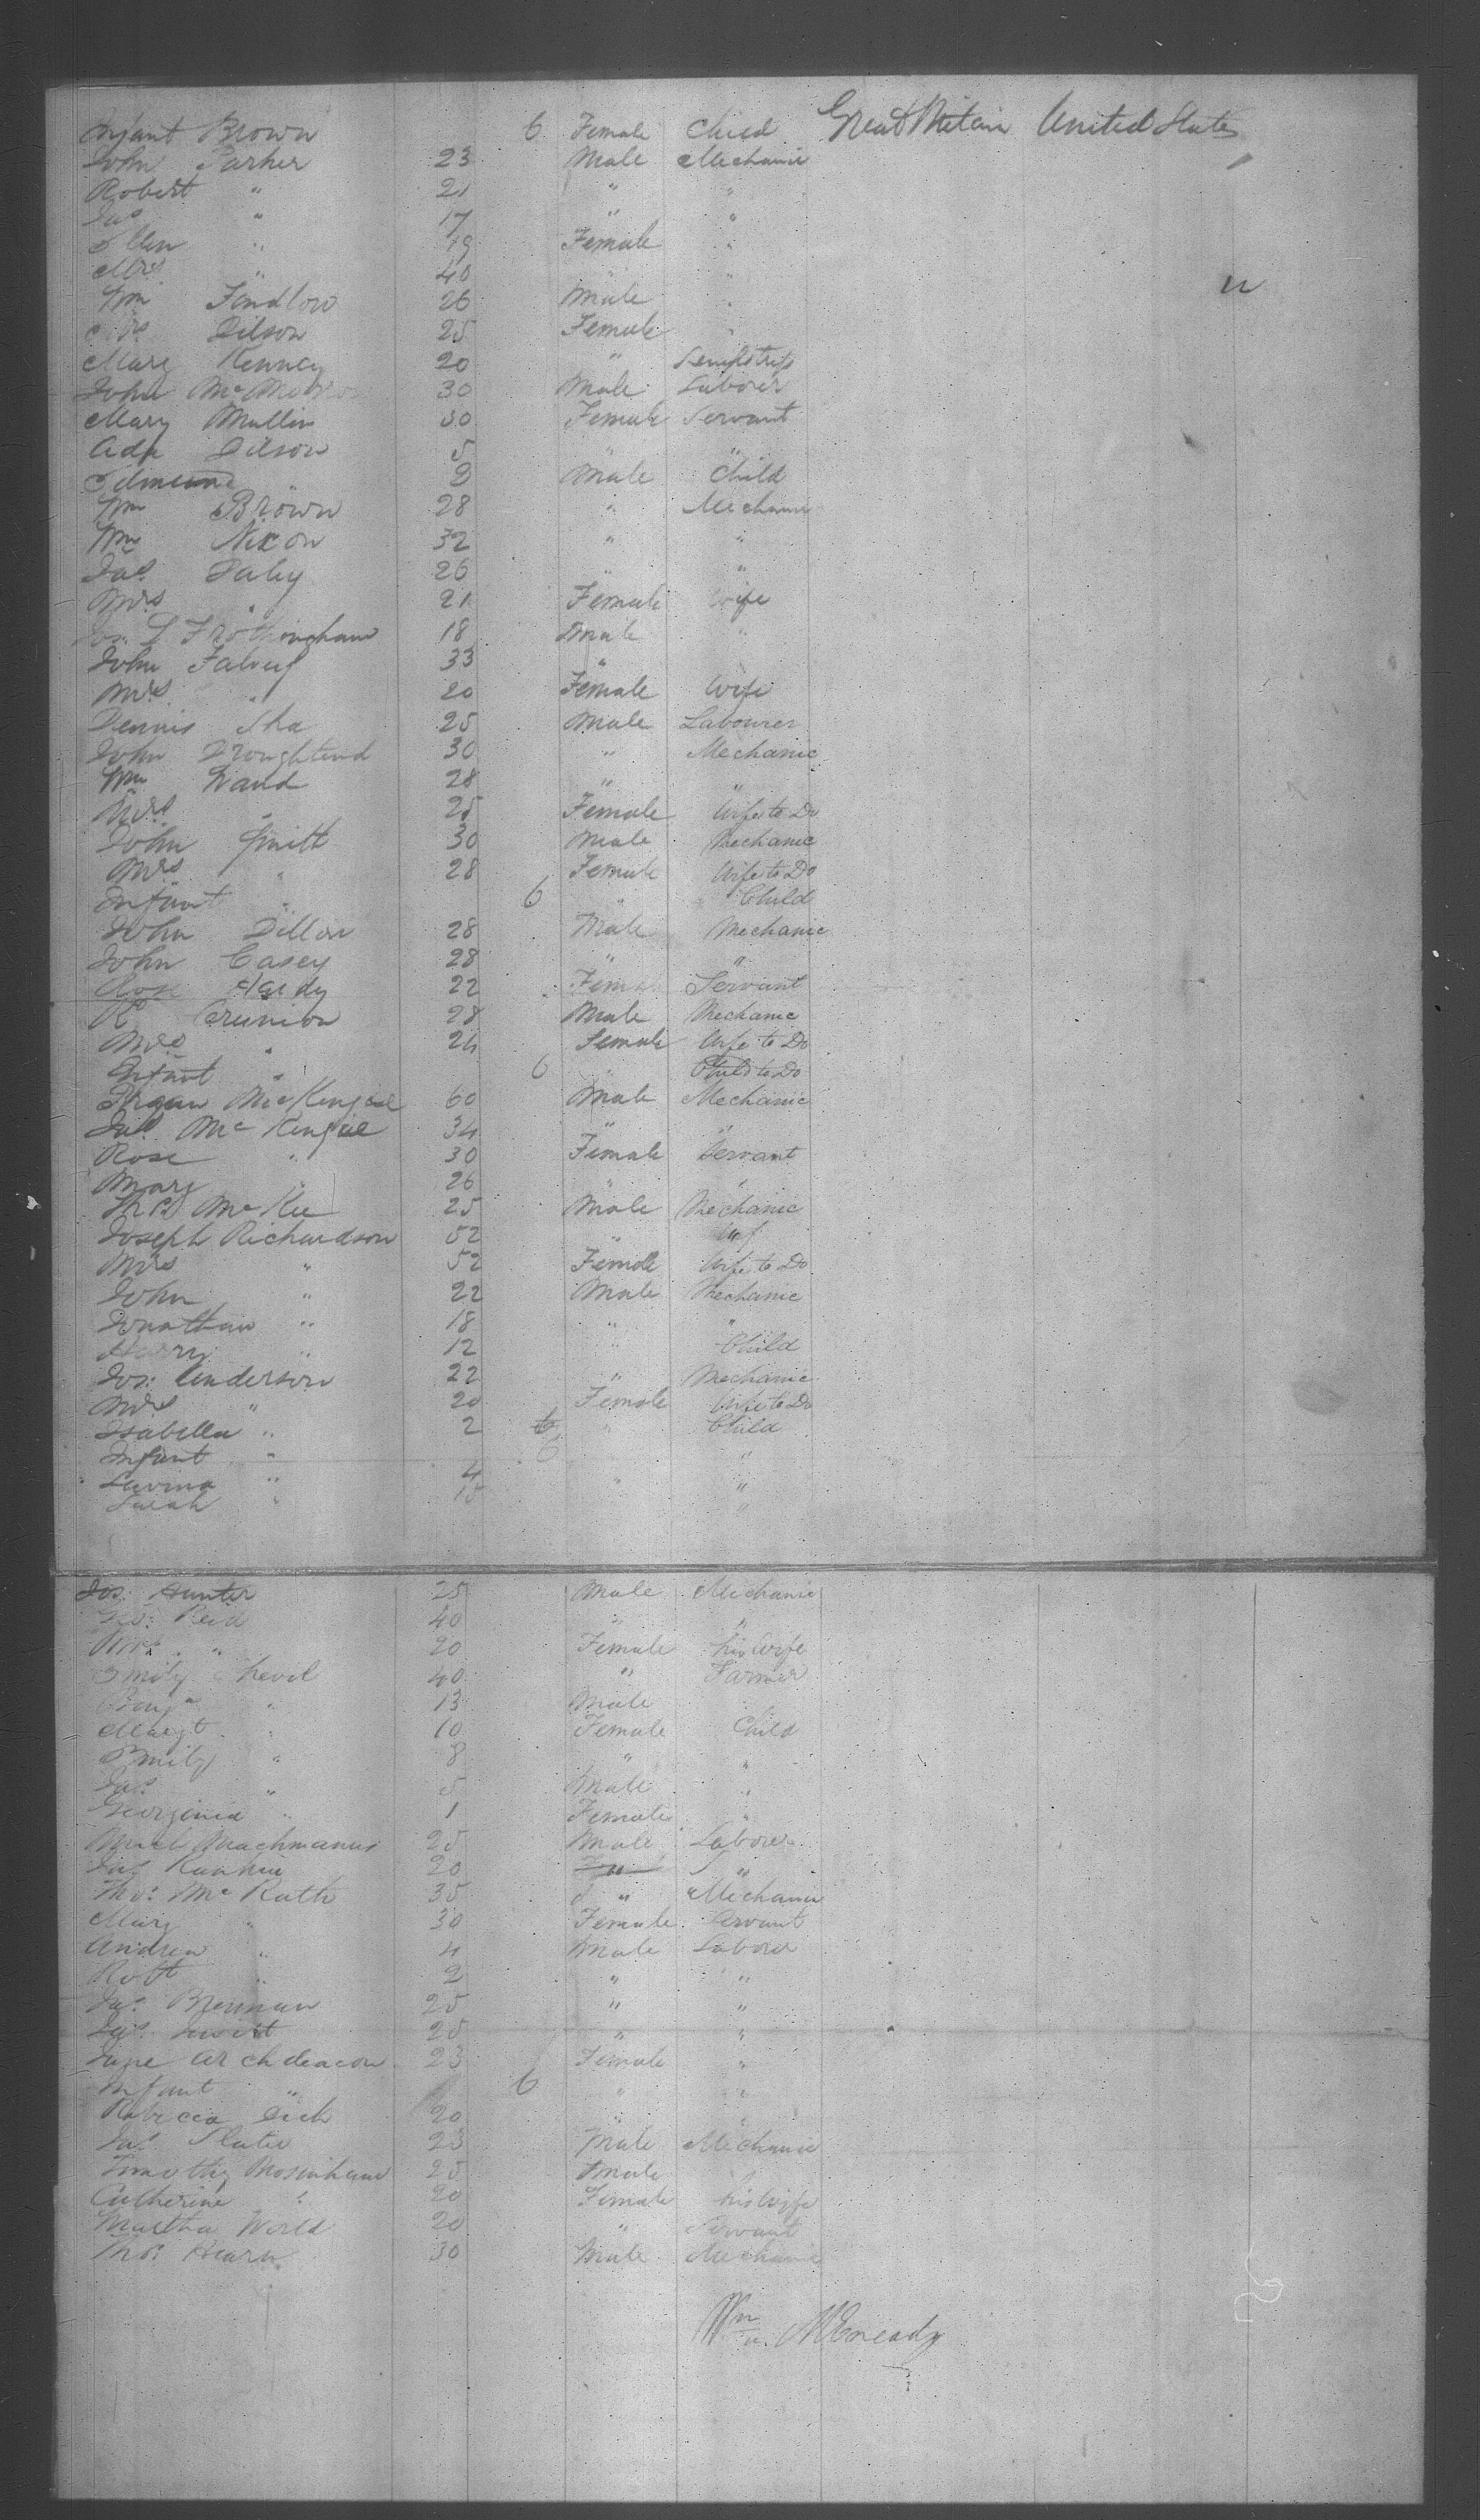 Infant Brown 6 Female Child Great Britain United States
John Parker 23 Male Mechanic
Robert " 21 " "
Jas " 17 " "
Ellen " 19 Female "
Mrs " 40 " "
Wm 26 Male "
Mrs Dilson 25 Female "
Mary Kenney 20 " Sempstress
John 30 Male Laborer
Mary Mullin 30 Female Servant
Ada Dilson 5 " "
Edmund 9 Male Child
Wm Brown 28 " Mechanic
Wm Nixon 32 " "
Jas Daley 26 " "
Mrs " 21 Female Wife
Jos: L Frothingham 18 Male "
John Falvey 33 "
Mrs " 20 Female Wife
Dennis Sha 25 Male Labourer
John 30 " Mechanic
Wm 28 " "
Mrs " 25 Female Wife to Do
John Smith 30 Male Mechanic
Mrs " 28 Female Wife to Do
Infant " 6 " Child
John Dillon 28 Male Mechanic
John Casey 28 " "
Rose Hardy 22 Female Servant
R 28 Male Mechanic
Mrs " 24 Female Wife to Do
Infant " 6 " Child to Do
McKengie 60 Male Mechanic
Jas McKengie 34 " "
Rose " 30 Female Servant
Mary " 26 " "
Thos McKee 25 Male Mechanic
Joseph Richardson 52 "
Mrs " 52 Female Wife to Do
John " 22 Male Mechanic
Jonathan " 18 " "
Harry " 12 " Child
Jos: Anderson 22 " Mechanic
Mrs " 20 Female Wife to Do
Isabella " 2 6 " Child
Infant " 6 "
Lavina " 4 " "
Sarah " 15 "
Jos: Hunter 25 Male Mechanic
Reid 40 " "
Mrs. " 20 Female his Wife
Emily 40 " Farmer
Benj " 13 Male
Margt " 10 Female Child
Emily " 8 " "
Jas " 5 Male "
Georgina " 1 Female "
25 Male Laborer
Jas 20 " "
Thos: McRath 35 " Mechanic
Mary " 30 Female Servant
Andrew " 4 Male Laborer
Robt " 2 " "
Jas. Brennan 25 " "
Jas. 25 " "
Jane Archdeacon 23 Female "
Infant " 6 " "
Rebecca 20 " "
Jas. Slater 23 Male Mechanic
Timothy 25 Male "
Catherine " 20 Female his Wife
Martha World 20 " Servant
Thos: Hearn 30 Male Mechanic
Wm